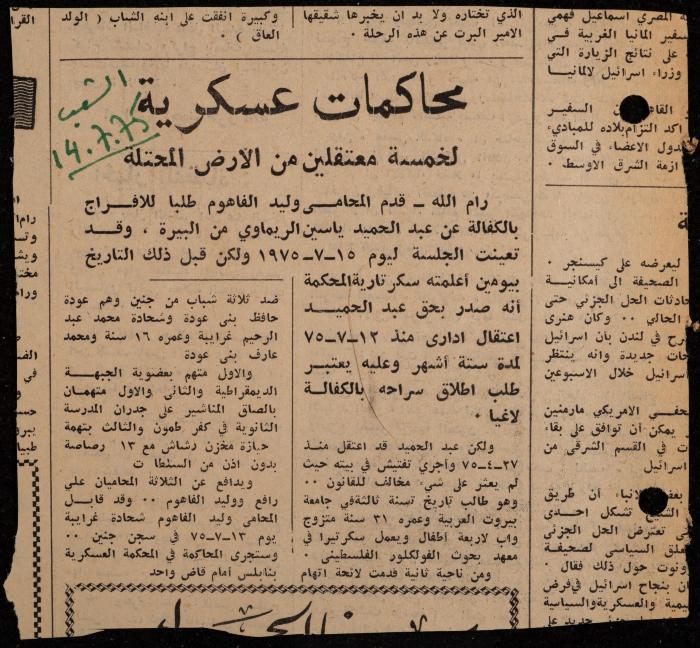 الذي تختاره ولا بد ان يخبرها شقيقها
الامير البرت عن هذه الرحلة .
وكبيرة انفقت على ابنه الشاب ( الولد
العاق ) .
الشعب
14.7.75
محاكمات عسكرية
لخمسة معتقلين من الأرض المحتلة
رام الله ـ قدم المحامي وليد الفاهوم طلبا للافراج
بالكفالة عن عبد الحميد ياسين الريماوي من البيرة ، وقد
تعينت الجلسة ليوم ١٥ـ٧ـ١٩٧٥ ولكن قبل ذلك التاريخ
بيومين أعلمته سكرتارية المحكمة
أنه صدر بحق عبد الحميد
اعتقال ادارى منذ ١٢ـ٧ـ٧٥
لمدة ستة أشهر وعليه يعتبر
طلب اطلاق سراحه بالكفالة
لاغيا .
ولكن عبد الحميد قد اعتقل منذ
٢٧ـ٤ـ٧٥ وأجري تفتيش في بيته حيث
لم يعثر على شيء مخالف للقانون ..
وهو طالب تاريخ تسنة ثالثة في جامعة
بيروت العربية وعمره ٣١ سنة متزوج
واب لاربعة أطفال ويعمل سكرتيرا في
معهد بحوث الفولكلور الفلسطيني .
ومن ناحية ثانية قدمت لائحة اتهام
ضد ثلاثة شباب من جنين وهم عودة
حافظ بني عودة وشحادة محمد عبد
الرحيم غرايبة وعمره ١٦ سنة ومحمد
عارف بني عودة
والاول متهم بعضوية الجبهة
الديمقراطية والثاني والاول متهمان
بالصاق المناشير على جدران المدرسة
الثانوية في كفر طمون والثالث بتهمة
حيازة مخزن رشاش مع ١٣ رصاصة
بدون اذن من السلطات
ويدافع عن الثلاثة المحاميان علي
رافع ووليد الفاهوم .. وقد قابل
المحامي وليد الفاهوم شحادة غرايبة
يوم ١٣ـ٧ـ٧٥ في سجن جنين ..
وستجرى المحاكمة في المحكمة العسكرية
بنابلس أمام قاض واحد
المصري اسماعيل فهمي
سفير المانيا الغربية في
على نتائج الزيارة التي
وزراء اسرائيل لالمانيا
السفير
اكد التزام بلاده للمبادىء
دول الاعضاء في السوق
ازمة الشرق الاوسط .
ليعرضه على كيسنجر .
الصحيفة الى أمكانية
حادثات الحل الجزئي حتى
الحالي .. وكان هنرى
رح في لندن بأن اسرائيل
حات جديدة وانه ينتظر
اسرائيل خلال الاسبوعين
حفي الامريكي مارمنين
يمكن أن توافق على بقاء
ت في القسم الشرقي من
اسرائيل
أن طريق
تشكل احدى
تعترض الحل الجزئي
علق السياسي لصحيفة
ونوت حول ذلك فقال .
ن بنجاح اسرائيل في فرض
يمية والعسكرية والسياسية